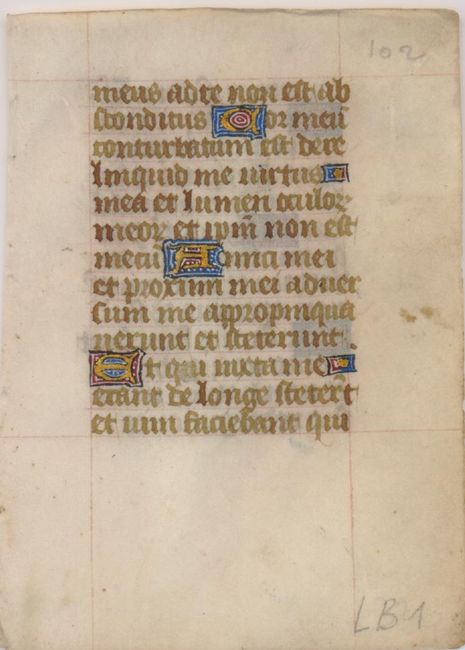 102
meus ad te non est ab
sconditus Cor meū
conturbatum est dere
linquid me uirtus
mea et lumen oculoꝝ
meoꝝ et ipm̄ non est
mecū Amici mei
et proximi mei aduer
sum me appropinqua
uerunt et steterunt.
Et qui iuxta me
erant de longe steter̄t
et uim faciebant qui
LB1